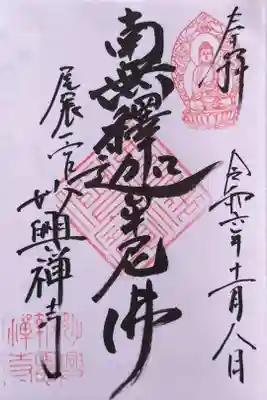 奉拝
令和六年十一月八日
南無釋迦牟尼佛
尾張一宮 妙興禅寺